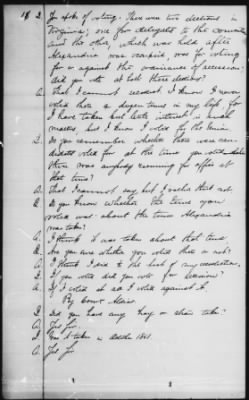 18 Q. You spoke of voting. There were two elections in
Virginia; one for delegates to the convention
and the other, which was held after
Alexandria was occupied, was for voting
for or against the ordinance of secession.
Did you vote at both those elections?
A. That I cannot recollect. I know I never
voted half a dozen times in my life, for
I have taken but little interest in such
matters, but I know I voted for the Union.
Q. Do you remember whether there were can-
didates voted for at the time you voted
there was anybody running for office at
that time?
A. That I cannot say, but I rather think not.
Q. Do you know whether the time you
voted was about the time Alexandria
was taken?
A. I think it was taken about that time.
Q. Are you sure whether you voted then or not?
A. I think I did to the best of my recollection.
Q. If you voted did you vote for secession?
A. If I voted at all I voted against it.
By Comr
Q. Did you have any hay or taken?
A. Yes Sir.
Q. taken in 1861.
A. Yes Sir